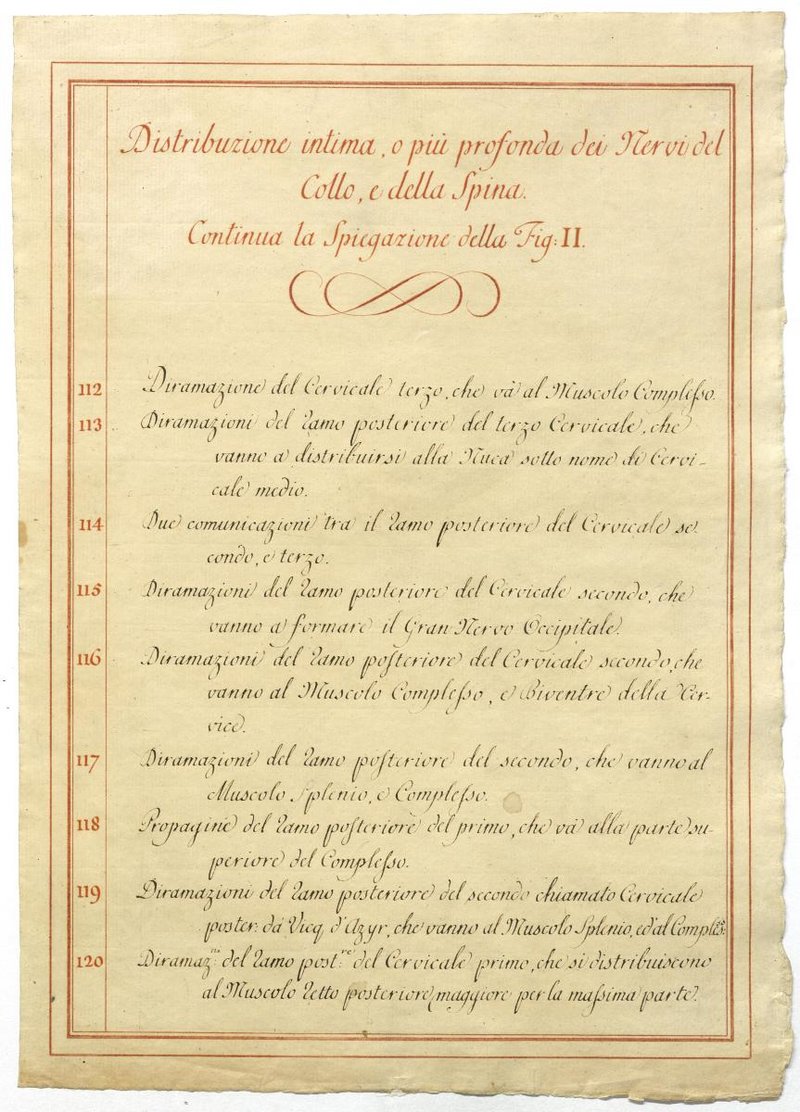 Distribuzione intima, o più profonda dei Nervi del
Collo, e della Spina.
Continua la Spiegazione della Fig: II.
112 Diramazione del Cervicale terzo, che và al Muscolo Complesso.
113 Diramazioni del ramo posteriore del terzo Cervicale, che
vanno a distribuirsi alla Nuca sotto nome di Cervi-
cale medio.
114 Due comunicazioni tra il ramo posteriore del Cervicale se-
condo, e terzo.
115 Diramazioni del ramo posteriore del Cervicale secondo, che
vanno a formare il Gran Nervo Occipitale.
116 Diramazioni del ramo posteriore del Cervicale secondo, che
vanno al Muscolo Complesso, e Biventre della Cer-
vice.
117 Diramazioni del ramo posteriore del secondo, che vanno al
Muscolo Splenio, e Complesso.
118 Propagine del ramo posteriore del primo, che và alla parte su-
periore del Complesso.
119 Diramazioni del ramo posteriore del secondo chiamato Cervicale
poster: da Vicq d'Azyr, che vanno al Muscolo Splenio, ed al Compless:
120 Diramaz:ni del ramo post:re del Cervicale primo, che si distribuiscono
al Muscolo retto posteriore maggiore per la massima parte.